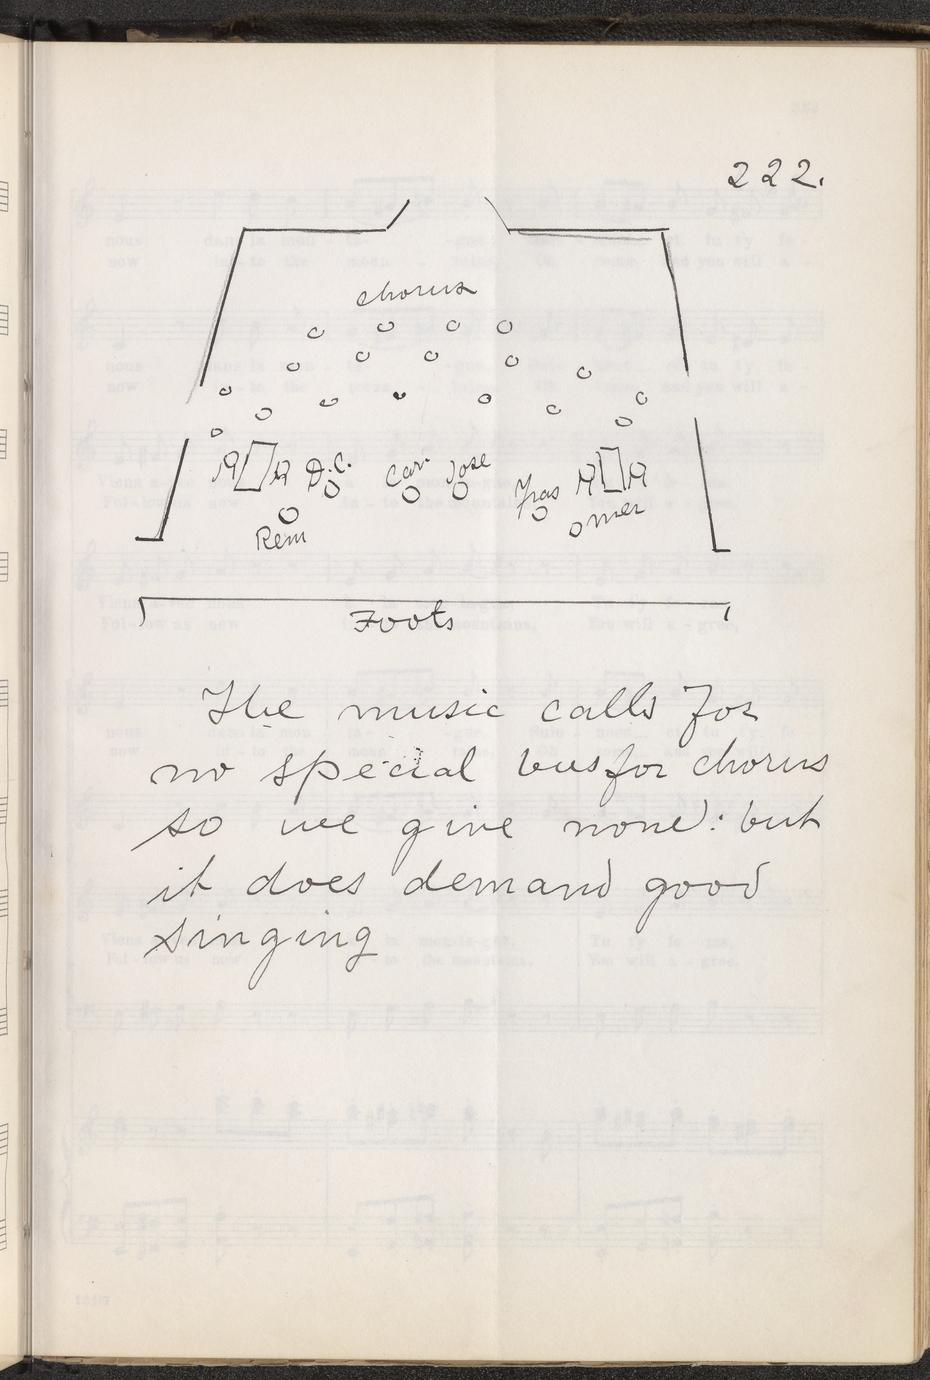 222.
chorus
D.C. Car. Jose
Fras
mer
Rem
Foots
The music calls for
no special bus for chorus
so we give none: but
it does demand good
singing